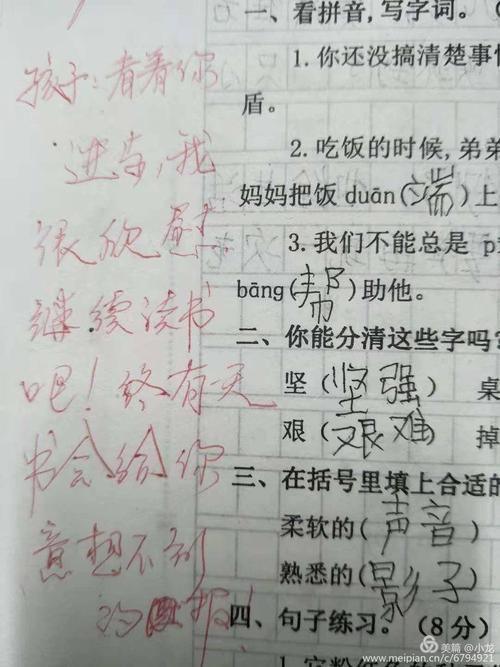 孩子:看着你
进步,我
很欣慰。
继续读书
吧!终有一天
书会给你
意想不到
的回报!
一、看拼音,写字词。(
1.你还没搞清楚事情
盾。
2.吃饭的时候,弟弟
妈妈把饭 duān(端)上
3.我们不能总是 pī
bāng(帮)助他。
二、你能分清这些字吗?
坚(坚强) 桌
艰(艰难) 掉
三、在括号里填上合适的
柔软的(声音)
熟悉的(影子)
四、句子练习。(8分)
美篇 @小龙
www.meipian.cn/c/6794921